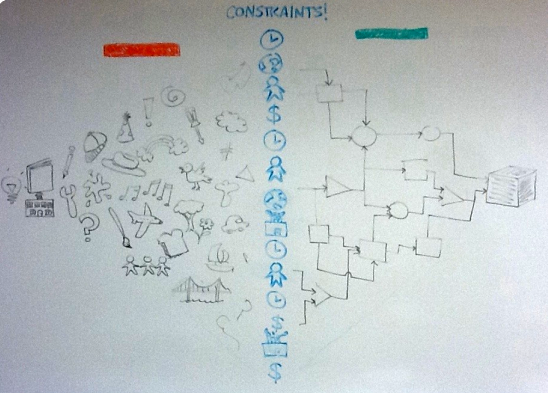 CONSTRAINTS!
!
$
?
$
$